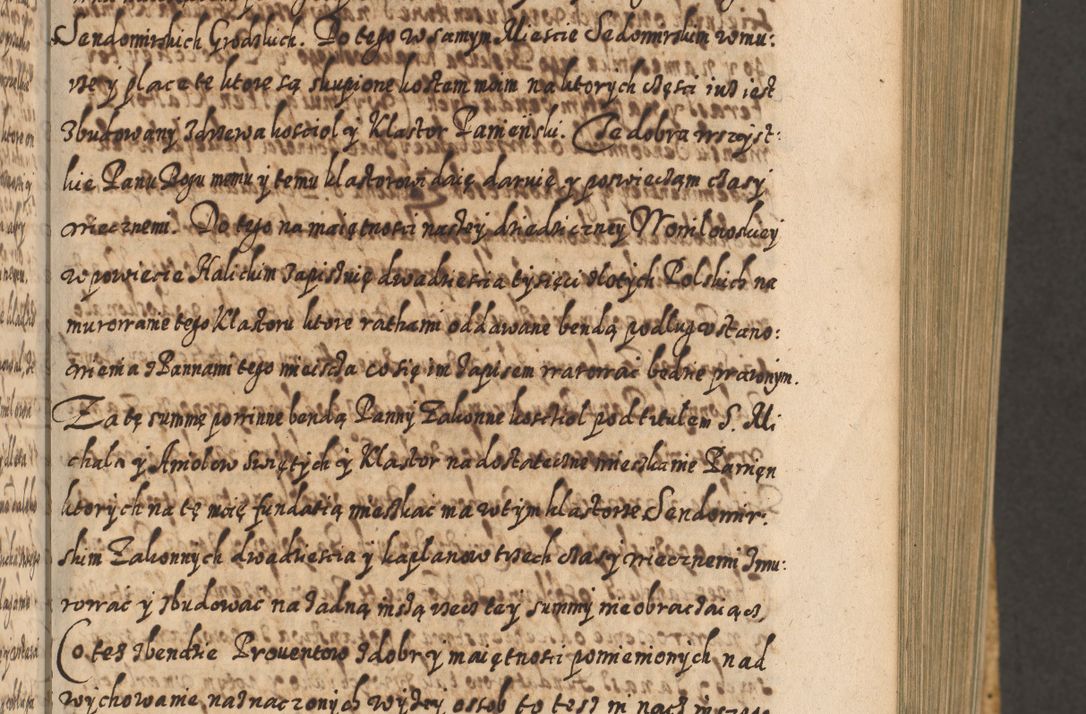 Sendomirskich Grodskich. Do tego w samym Miescie Sedomirskim w mu:
rze y place te ktore są skupione kostem moim na ktorych częsci iuż iest
zbudowany z drzewa kosciol y Klastor Panieński. Te dobra wszyst:
kie Panu Bogu memu y temu klastorowi daię daruię y poswiecam czasy
wiecznemi. Do tego na maiętnosci naszey dziedziczney Womilowskiey
w powiecie Halickim zapisuię dwadziescia tysięci zlotych Polskich na
murowanie tego Klastoru ktore rathami oddawane bendą podlug vstano:
wienia z Pannami tego mieisca co się im zapisem warować będzie prawnym.
Za tę summę powinne bendą Panny Zakonne kosciol pod titulem S. Mi
chala y Aniolow Swiętych y Klastor na dostateczne mieszkanie Panięn
ktorych na tę moię fundatią mieszkac ma w tym klastorze Sendomir:
skim Zakonnych dwadziescia y kaplanow trzech czasy wiecznemi zmu:
rować y zbudować na żadną inszą rzecz tey summy nie obracaiąc
Co też zbendzie Proventow z dobr y maiętnosci pomienionych nad
wychowanie naznaczonych wyżey osob to też im